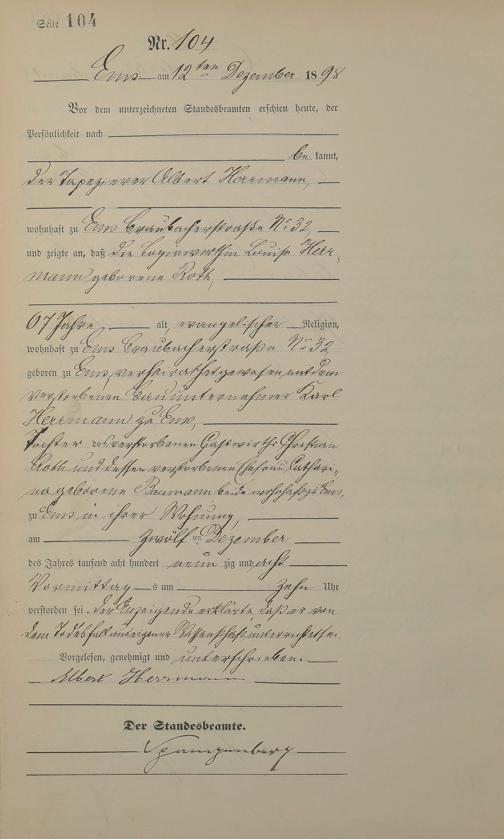 Seite 104
Nr. 104
Ems am 12ten Dezember 1898
Vor dem unterzeichneten Standesbeamten erschien heute, der
Persönlichkeit nach
be kannt,
der Tapezierer Albert Herrmann,
wohnhaft zu Ems Braubacherstraße No 32,
und zeigte an, daß die Logirwirthin Louise Herr-
mann geborene Roth,
67 Jahre alt, evangelischer Religion,
wohnhaft zu Ems Braubacherstraße No 32
geboren zu Ems, verheirathet gewesen mit dem
verstorbenen Bauunternehmer Karl
Herrmann zu Ems,
Tochter des verstorbenen Gastwirths Christian
Roth und dessen verstorbenen Ehefrau Cathari-
na geborene Baumann beide wohnhaft zu Ems,
zu Ems in ihrer Wohnung,
am zwölften Dezember
des Jahres tausend acht hundert neun zig und acht
Vormittags um zehn Uhr
verstorben sei. Der Anzeigende erklärte daß er von
dem Todesfall aus eigener Wissenschaft unterrichtet sei.
Vorgelesen, genehmigt und unterschrieben.
Albert Herrmann
Der Standesbeamte.
Spangenberg